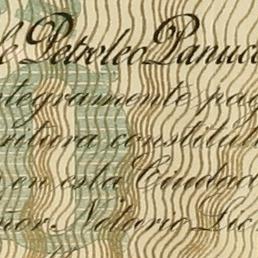 Petroleo Panuco
integramente pag
ritura constitut
en esta Ciudad
ñor Notario Lic